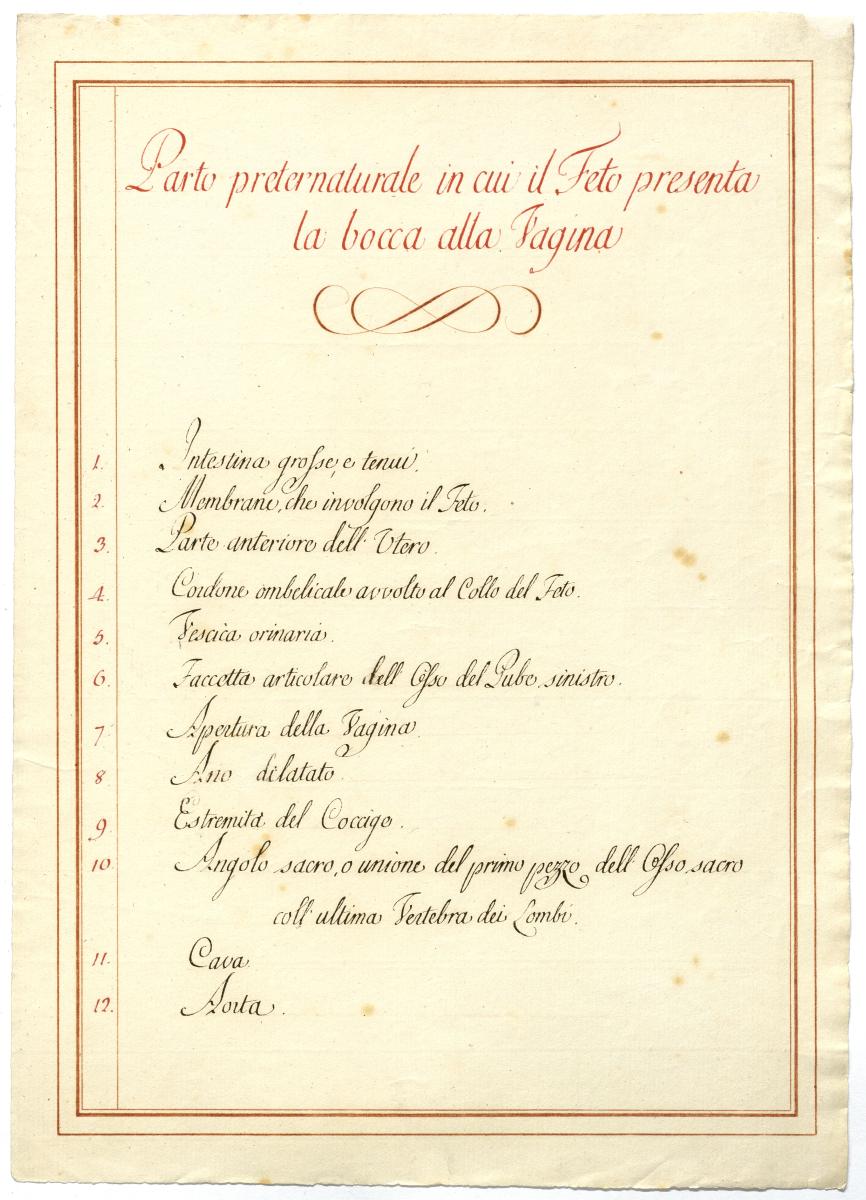 Parto preternaturale in cui il Feto presenta
la bocca alla Vagina
1. Intestina grosse, e tenui.
2. Membrane, che involgono il Feto.
3. Parte anteriore dell' Utero.
4. Cordone ombelicale avvolto al Collo del Feto.
5. Vescica orinaria.
6. Faccetta articolare dell' Osso del Pube sinistro.
7. Apertura della Vagina
8 Ano dilatato
9. Estremità del Coccige.
10. Angolo sacro, o unione del primo pezzo dell' Osso sacro
coll' ultima Vertebra dei Lombi.
11. Cava
12. Aorta.